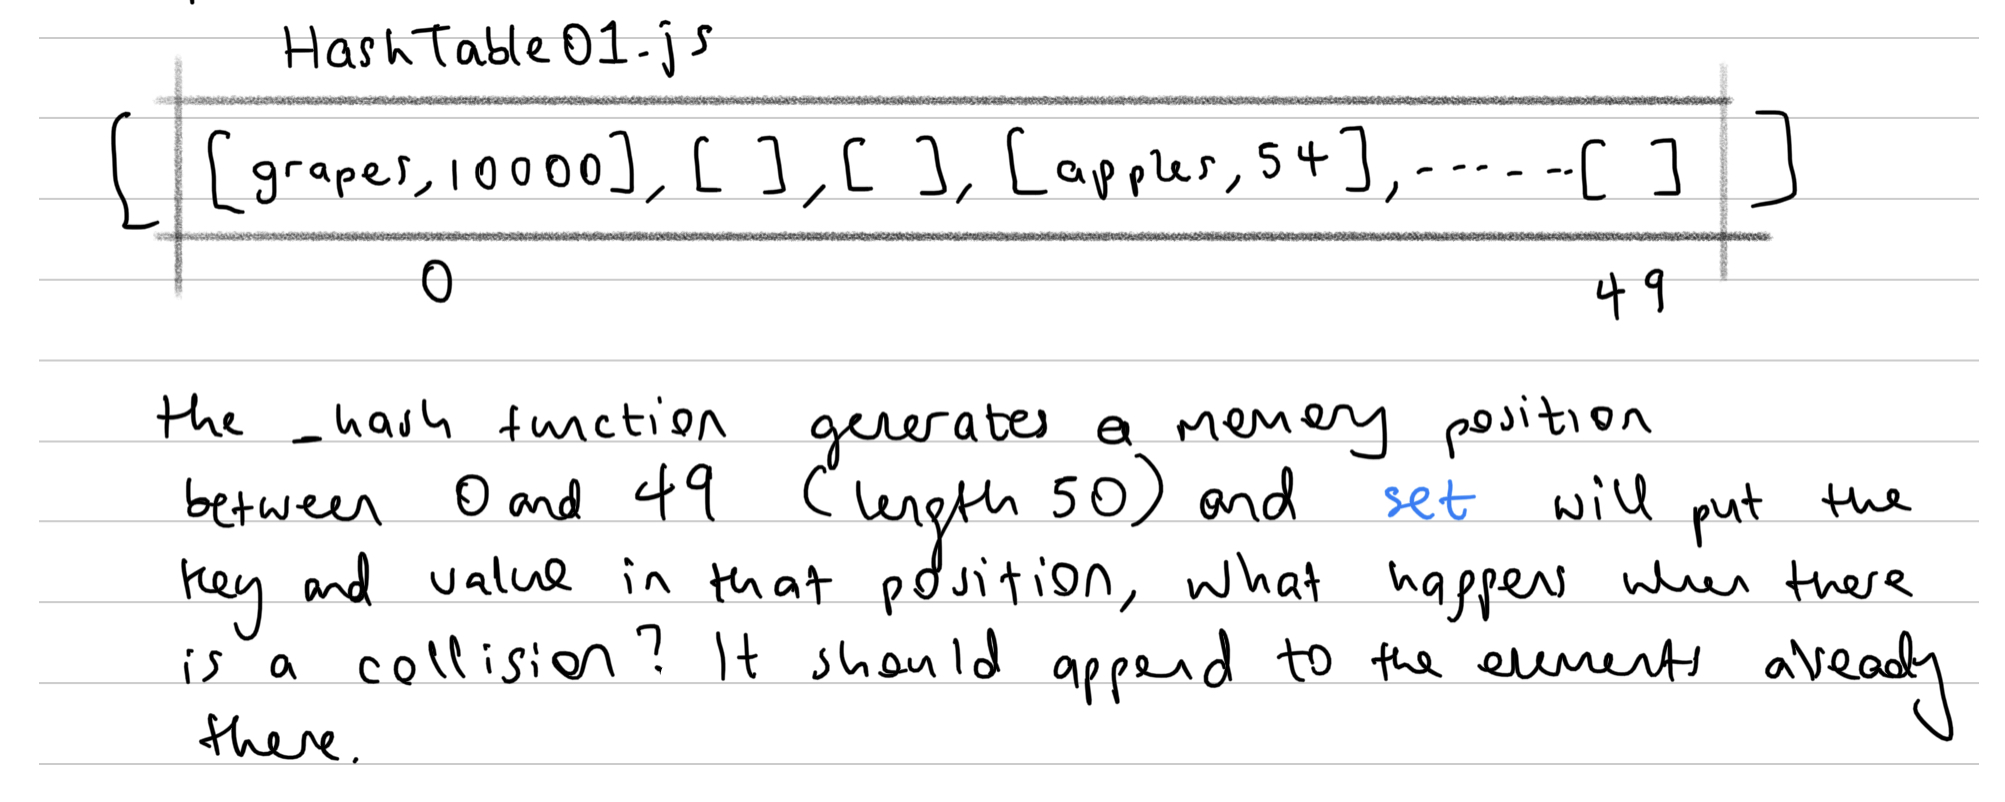 HashTable01.js
[ [grapes,10000], [ ], [ ], [apples,54],------[ ] ]
0 49
the _hash function generates a memory position
between 0 and 49 (length 50) and set will put the
key and value in that position, what happens when there
is a collision? It should append to the elements already
there.